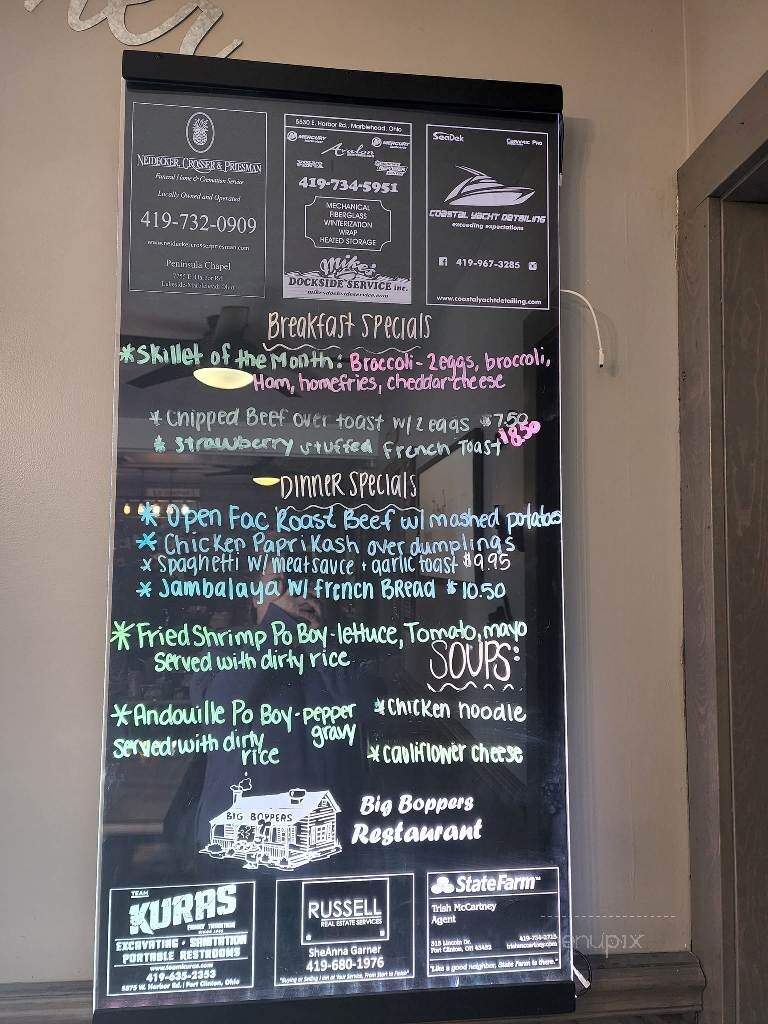 ner
NEIDECKER, CROSSER & PRIESMAN
Funeral Home & Cremation Service
Locally Owned and Operated
419-732-0909
www.neideckercrosserpriesman.com
Peninsula Chapel
5530 E. Harbor Rd., Marblehead, Ohio
MERCURY
Avalon
MERCURY
419-734-5951
MECHANICAL
FIBERGLASS
WINTERIZATION
WRAP
HEATED STORAGE
Mike's
DOCKSIDE SERVICE inc.
mikesdocksideservice.com
SeaDek
Ceramic Pro
COASTAL YACHT DETAILING
exceeding expectations
419-967-3285
www.coastalyachtdetailing.com
Breakfast Specials
*Skillet of the Month: Broccoli-2eggs, broccoli,
Ham, homefries, cheddar cheese
* Chipped Beef over toast w/2 eggs $7.50
* Strawberry stuffed French Toast $8.50
Dinner Specials
* Open Fac Roast Beef w/ mashed potatoes
* Chicken Paprikash over dumplings
* Spaghetti w/ meatsauce + garlic toast $9.95
* Jambalaya w/ french BRead $10.50
*Fried Shrimp Po Boy-lettuce, Tomato, mayo
served with dirty rice
SOUPS:
*Andouille Po Boy-pepper
gravy
served with dirty
rice
*Chicken noodle
*cauliflower cheese
BIG BOPPERS
Big Boppers
Restaurant
TEAM
KURAS
FAMILY TRADITION
EXCAVATING · SANITATION
PORTABLE RESTROOMS
www.teamkuras.com
419-635-2353
5575 W. Harbor Rd. | Port Clinton, Ohio
RUSSELL
REAL ESTATE SERVICES
SheAnna Garner
419-680-1976
"Buying or Selling I am at Your Service, From Start to Finish"
StateFarm™
Trish McCartney
Agent
315 Lincoln Dr.
Port Clinton, OH 43452
419-734-2715
trishmccartney.com
"Like a good neighbor, State Farm is there."
menupix